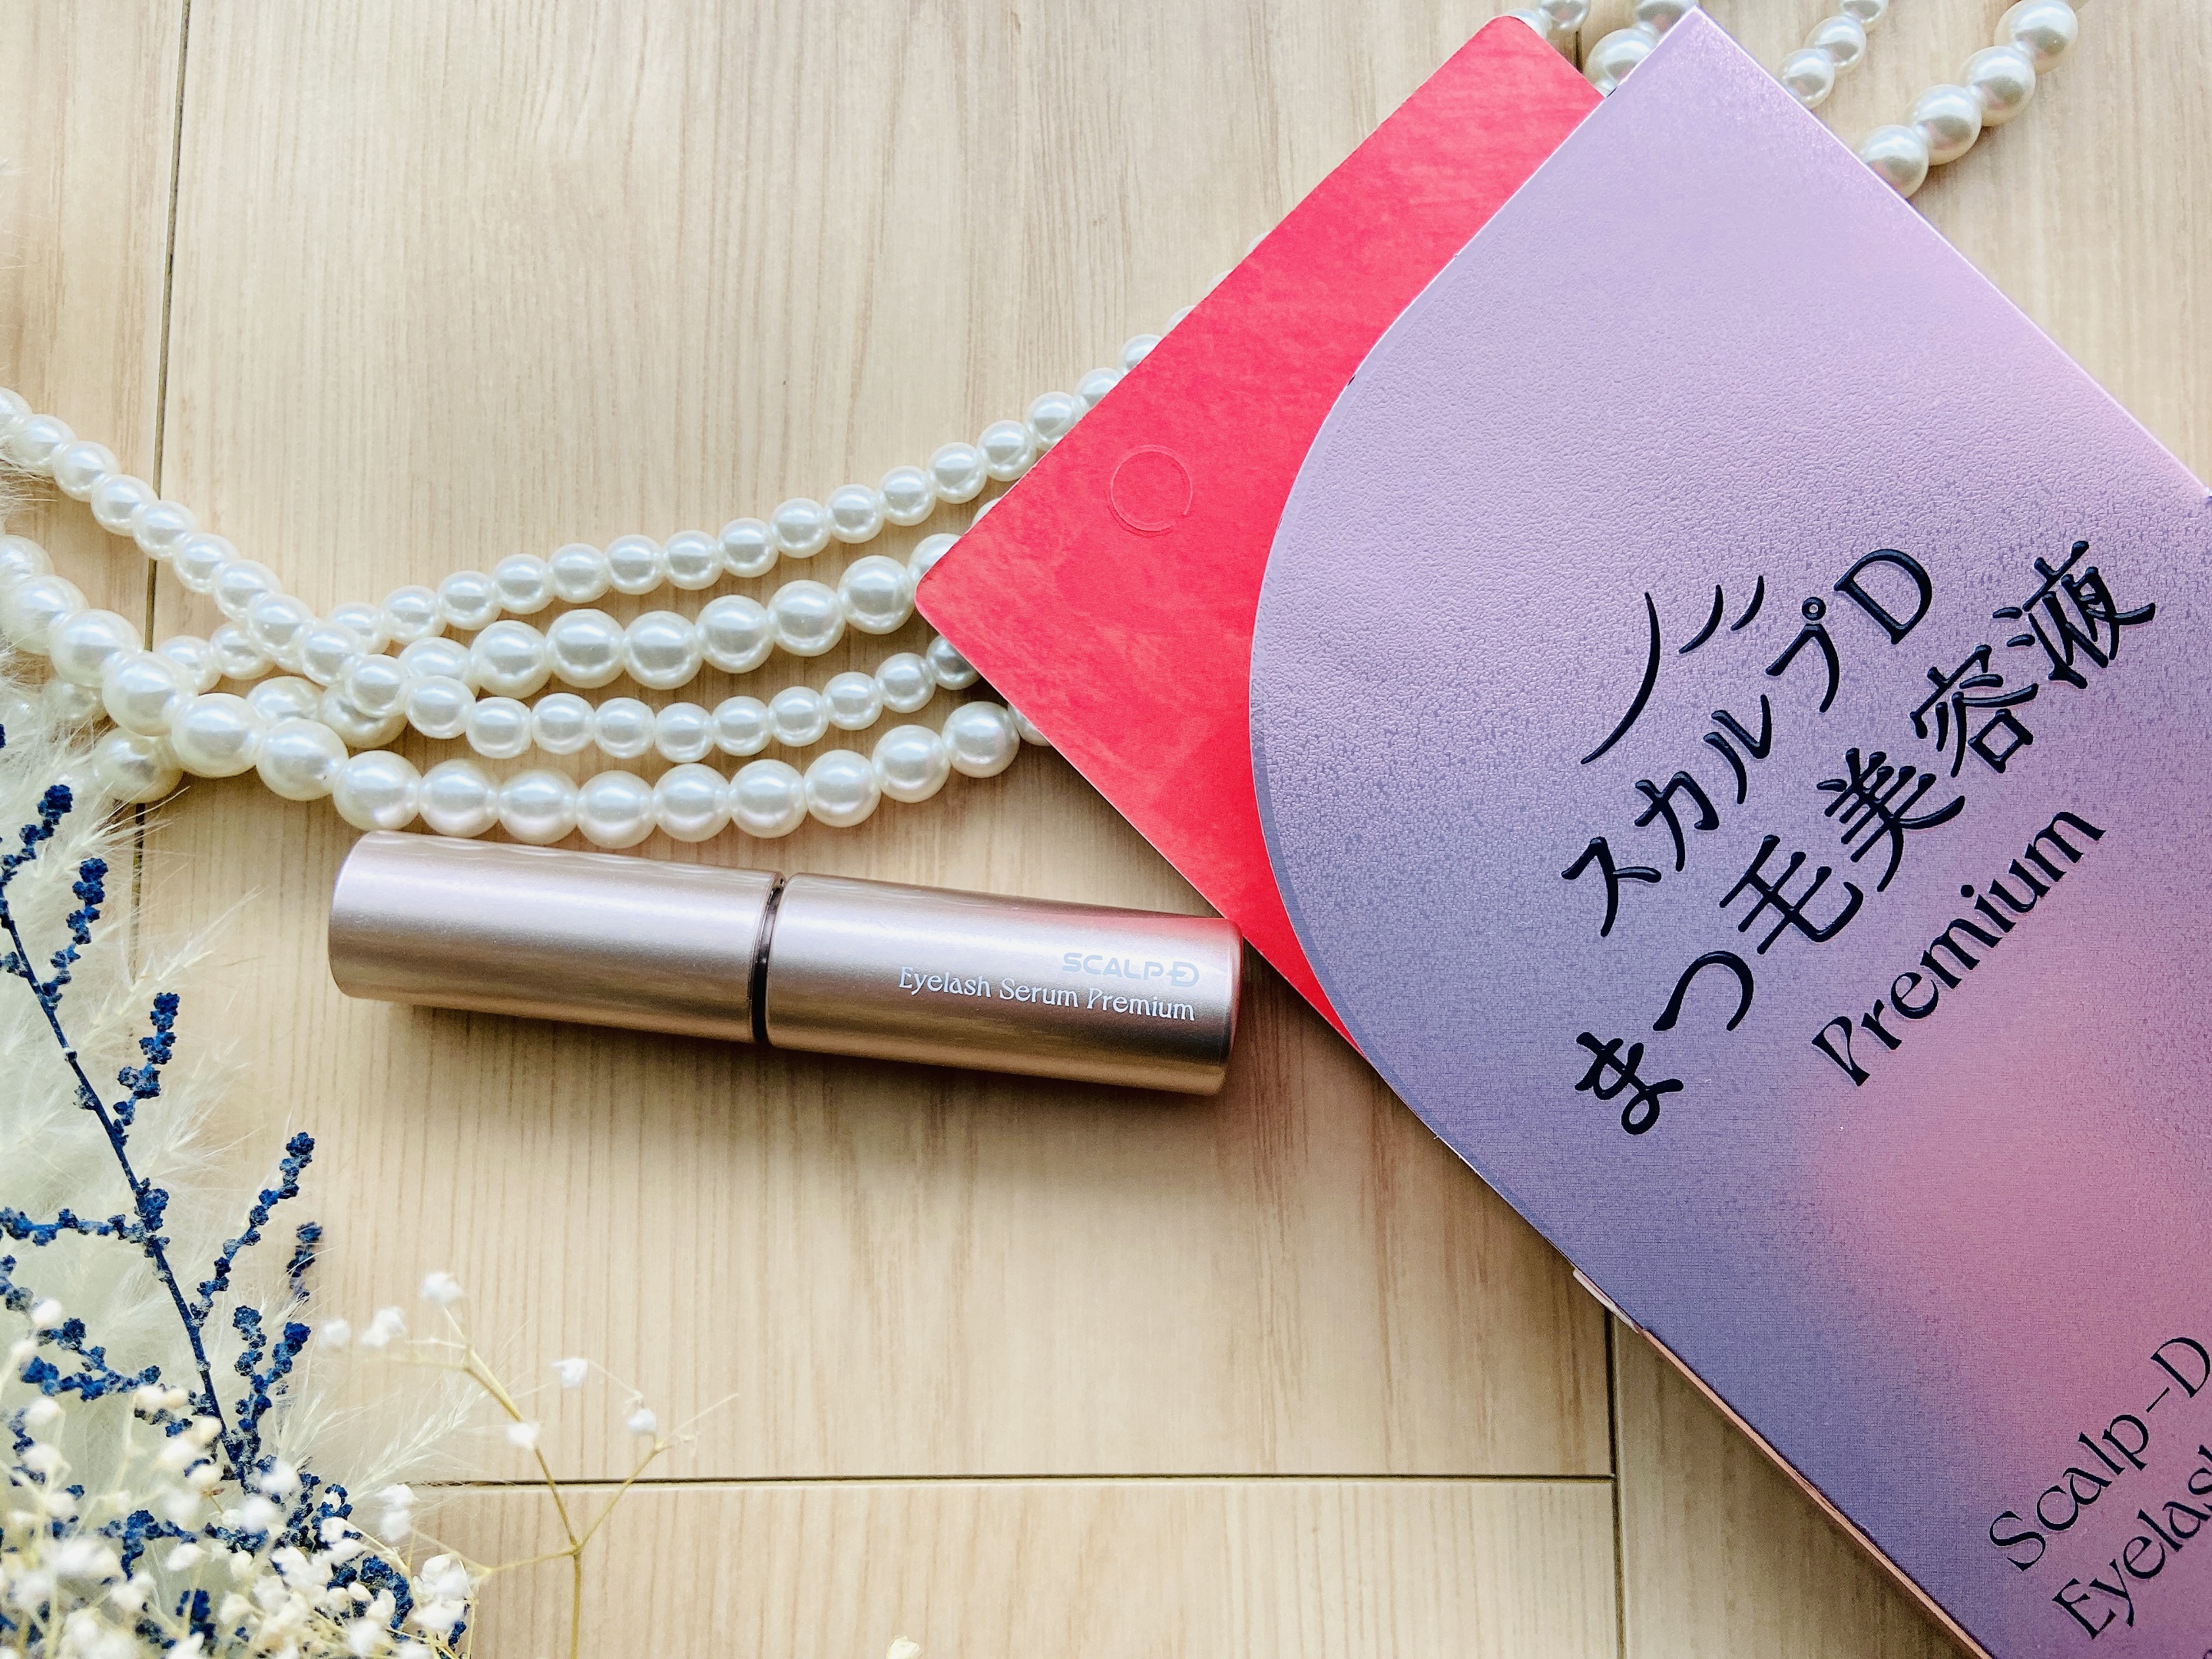 SCALP-D
Eyelash Serum Premium
スカルプD
まつ毛美容液
Premium
Scalp-D